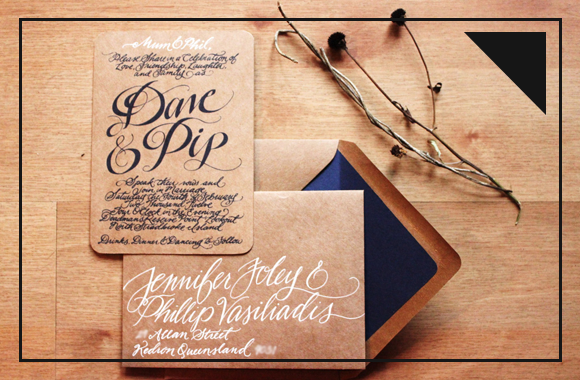 Mum & Phil,
Please Share in a Celebration of
Love, Friendship, Laughter
and Family as
Dave
& Pip
Speak their vows and
Join in Marriage
Saturday the Fourth of February
Two Thousand Twelve
Four O'Clock in the Evening
Reserve Point Lookout
North Stradbroke Island
Drinks, Dinner & Dancing to Follow
Jennifer Foley &
Phillip Vasiliadis
Allan Street
Kedron Queensland